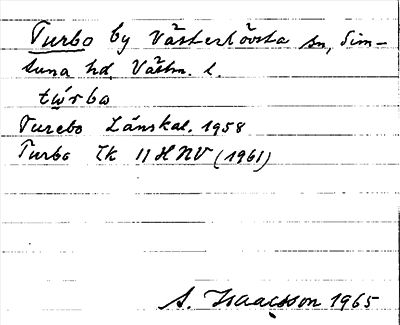 Turbo by Västerlövsta sn, Sim-
tuna hd, Västm. l.
tẃrbo
Turebo Länskal. 1958
Turbo Ek 11 H NV (1961)
S. Isaacsson 1965